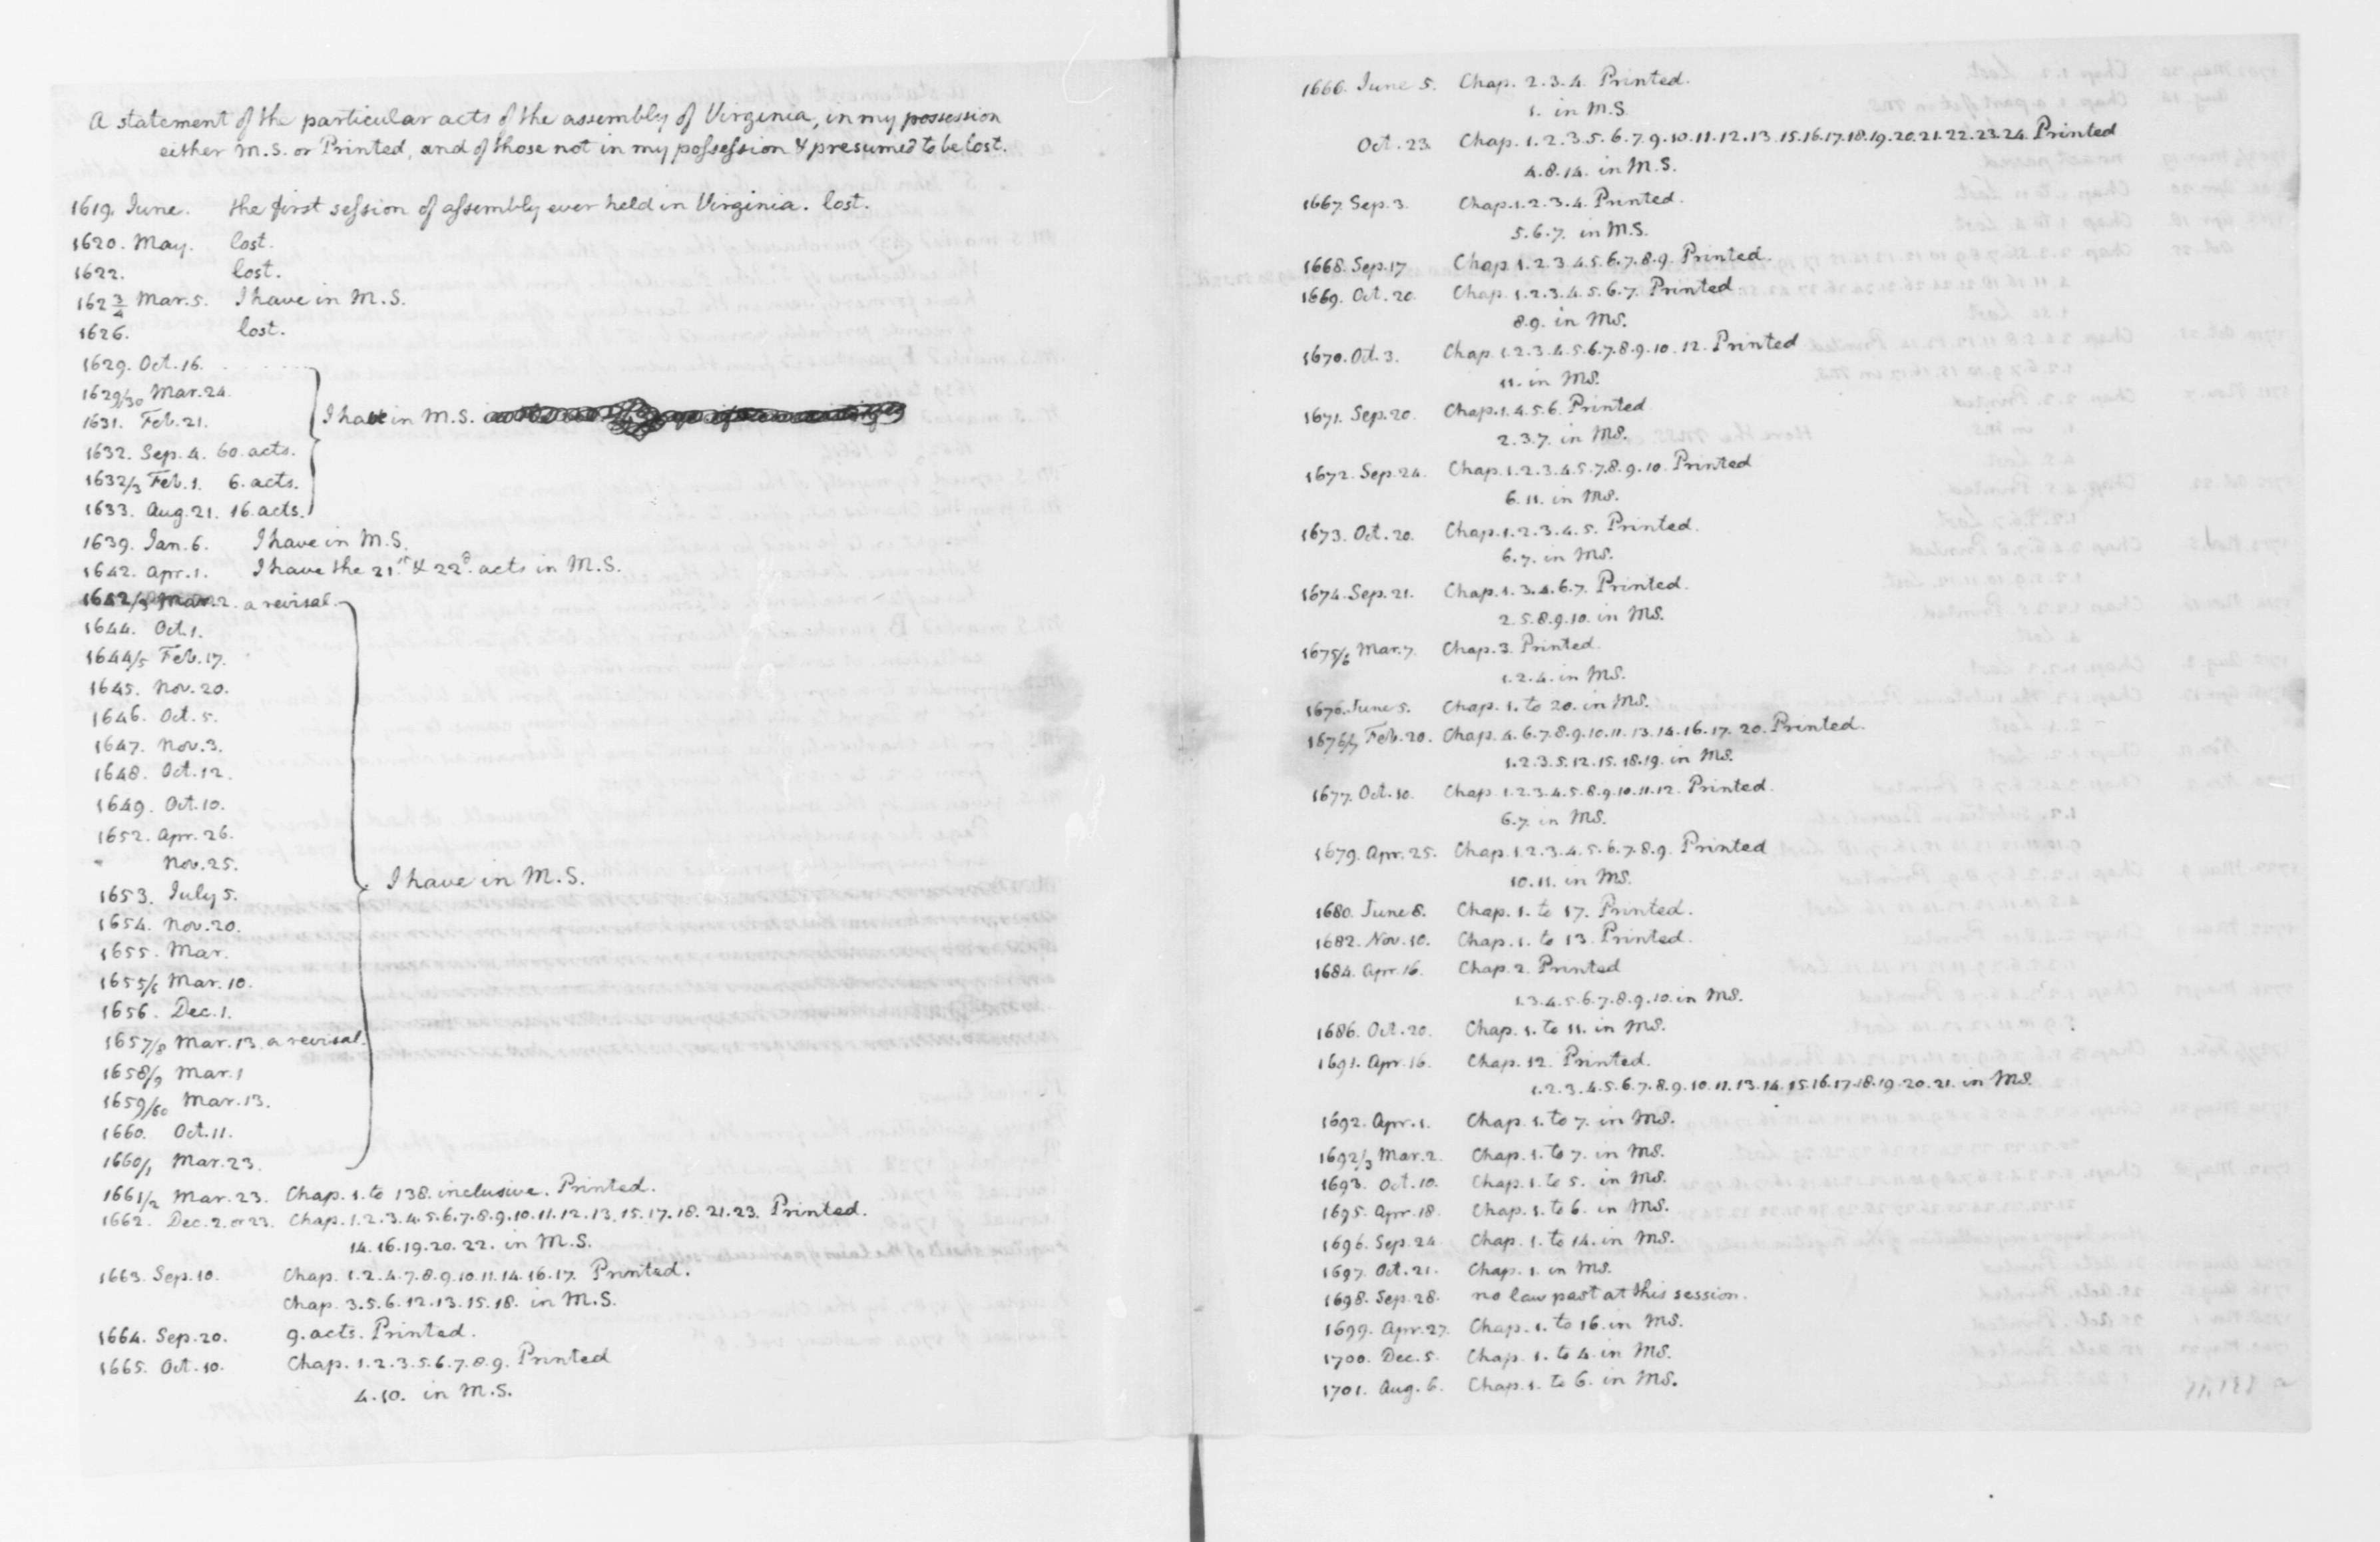 A statement of the particular acts of the assembly of Virginia, in my possession
either M.S. or Printed, and of those not in my possession & presumed to be lost.
1619. June. the first session of assembly ever held in Virginia. lost.
1620. May. lost.
1622. lost.
162 3/4 Mar. 5. I have in M.S.
1626. lost.
1629. Oct. 16.
1629/30 Mar. 24.
1631. Feb. 21.
I have in M.S.
1632. Sep. 4. 60. acts.
1632/3 Feb. 1. 6. acts.
1633. Aug. 21. 16. acts.
1639. Jan. 6. I have in M.S.
1642. Apr. 1. I have the 21st & 22d. acts in M.S.
1642/3 Mar. 2. a revisal.
1644. Oct. 1.
1644/5 Feb. 17.
1645. Nov. 20.
1646. Oct. 5.
1647. Nov. 3.
1648. Oct. 12.
1649. Oct. 10.
1652. Apr. 26.
" Nov. 25.
I have in M.S.
1653. July 5.
1654. Nov. 20.
1655. Mar.
1655/6 Mar. 10.
1656. Dec. 1.
1657/8 Mar. 13. a revisal.
1658/9 Mar. 1
1659/60 Mar. 13.
1660. Oct. 11.
1660/1 Mar. 23.
1661/2 Mar. 23. Chap. 1. to 138. inclusive. Printed.
1662. Dec. 2. or 23. Chap. 1.2.3.4.5.6.7.8.9.10.11.12.13.15.17.18.21.23. Printed.
14.16.19.20.22. in M.S.
1663. Sep. 10. Chap. 1.2.4.7.8.9.10.11.14.16.17. Printed.
Chap. 3.5.6.12.13.15.18. in M.S.
1664. Sep. 20. 9. acts. Printed.
1665. Oct. 10. Chap. 1.2.3.5.6.7.8.9. Printed
4.10. in M.S.
1666. June 5. Chap. 2.3.4. Printed.
1. in M.S.
Oct. 23. Chap. 1.2.3.5.6.7.9.10.11.12.13.15.16.17.18.19.20.21.22.23.24. Printed
4.8.14. in M.S.
1667. Sep. 3. Chap. 1.2.3.4. Printed.
5.6.7. in M.S.
1668. Sep. 17 Chap. 1.2.3.4.5.6.7.8.9. Printed.
1669. Oct. 20. Chap. 1.2.3.4.5.6.7. Printed
8.9. in MS.
1670. Oct. 3. Chap. 1.2.3.4.5.6.7.8.9.10.12. Printed
11. in MS.
1671. Sep. 20. Chap. 1.4.5.6. Printed
2.3.7. in MS.
1672. Sep. 24. Chap. 1.2.3.4.5.7.8.9.10. Printed
6.11. in MS.
1673. Oct. 20. Chap. 1.2.3.4.5. Printed.
6.7. in MS.
1674. Sep. 21. Chap. 1.3.4.6.7. Printed.
2.5.8.9.10. in MS.
1675/6 Mar. 7. Chap. 3. Printed.
1.2.4. in MS.
1676. June 5. Chap. 1. to 20. in MS.
1676/7 Feb. 20. Chap. 4.6.7.8.9.10.11.13.14.16.17.20. Printed.
1.2.3.5.12.15.18.19. in MS.
1677. Oct. 10. Chap. 1.2.3.4.5.8.9.10.11.12. Printed.
6.7. in MS.
1679. Apr. 25. Chap. 1.2.3.4.5.6.7.8.9. Printed
10.11. in MS.
1680. June 8. Chap. 1. to 17. Printed.
1682. Nov. 10. Chap. 1. to 13. Printed.
1684. Apr. 16. Chap. 2. Printed
1.3.4.5.6.7.8.9.10. in MS.
1686. Oct. 20. Chap. 1. to 11. in MS.
1691. Apr. 16. Chap. 12. Printed.
1.2.3.4.5.6.7.8.9.10.11.13.14.15.16.17.18.19.20.21. in MS.
1692. Apr. 1. Chap. 1. to 7. in MS.
1692/3 Mar. 2. Chap. 1. to 7. in MS.
1693. Oct. 10. Chap. 1. to 5. in MS.
1695. Apr. 18. Chap. 1. to 6. in MS.
1696. Sep. 24 Chap. 1. to 14. in MS.
1697. Oct. 21. Chap. 1. in MS.
1698. Sep. 28. no law past at this session.
1699. Apr. 27. Chap. 1. to 16. in MS.
1700. Dec. 5. Chap. 1. to 4. in MS.
1701. Aug. 6. Chap. 1. to 6. in MS.